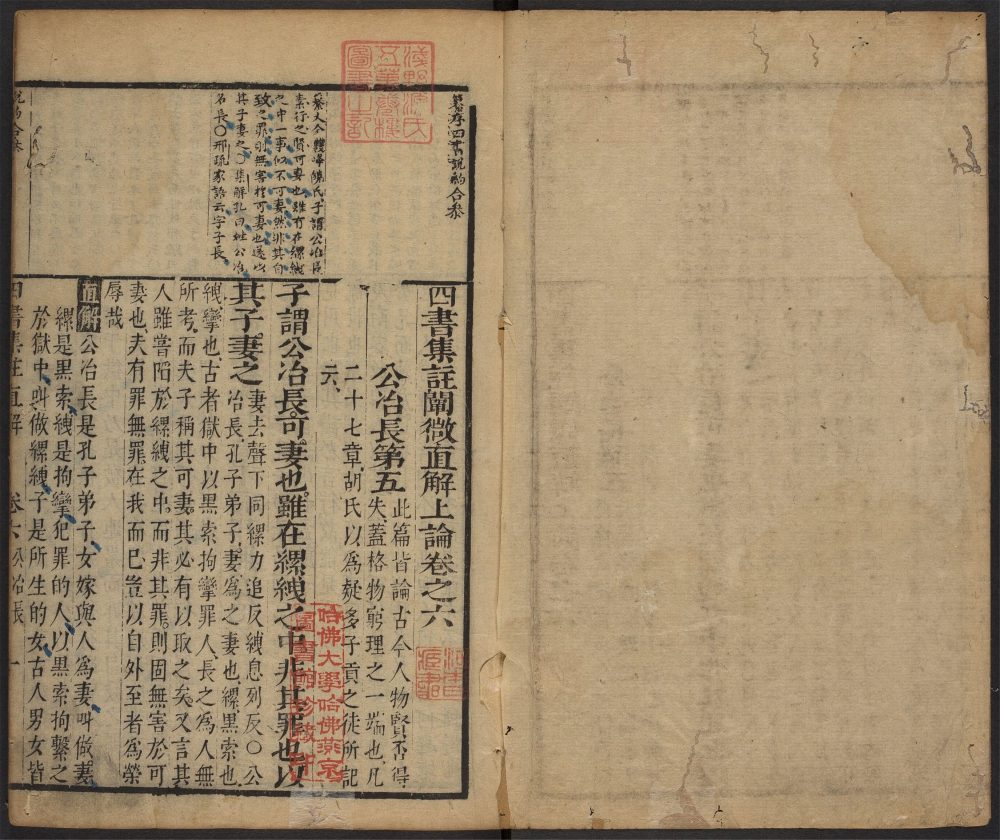 四書集註闡微直解上論卷之六
公冶長第五
此篇皆論古今人物賢否得
失蓋格物窮理之一端也凡
二十七章胡氏以為疑多子貢之徒所記
云
子謂公冶長可妻也雖在縲絏之中非其罪也以
其子妻之
妻去聲下同縲力追反絏息列反○公
冶長孔子弟子妻為之妻也縲黑索也
絏攣也古者獄中以黑索拘攣罪人長之為人無
所考而夫子稱其可妻其必有以取之矣又言其
人雖嘗陷於縲絏之中而非其罪則固無害於可
妻也夫有罪無罪在我而已豈以自外至者為榮
辱哉
直解公冶長是孔子弟子女嫁與人為妻叫做妻
縲是黑索絏是拘攣犯罪的人以黑索拘繫之
於獄中叫做縲絏子是所生的女古人男女皆
四書集註直解 卷六 公冶長 一
纂序四書說約合參
蔡大全雙峰饒氏子謂公冶長
素行之賢可妻也雖有在縲絏
之中一事似不可妻然非其自
致之罪則無害於可妻也遂以
其子妻之○集解孔曰姓公冶
名長○邢疏家語云字子長
說約合參
淺野源氏
五萬卷樓
圖書之記
哈佛大學哈佛燕京
圖書館珍藏印